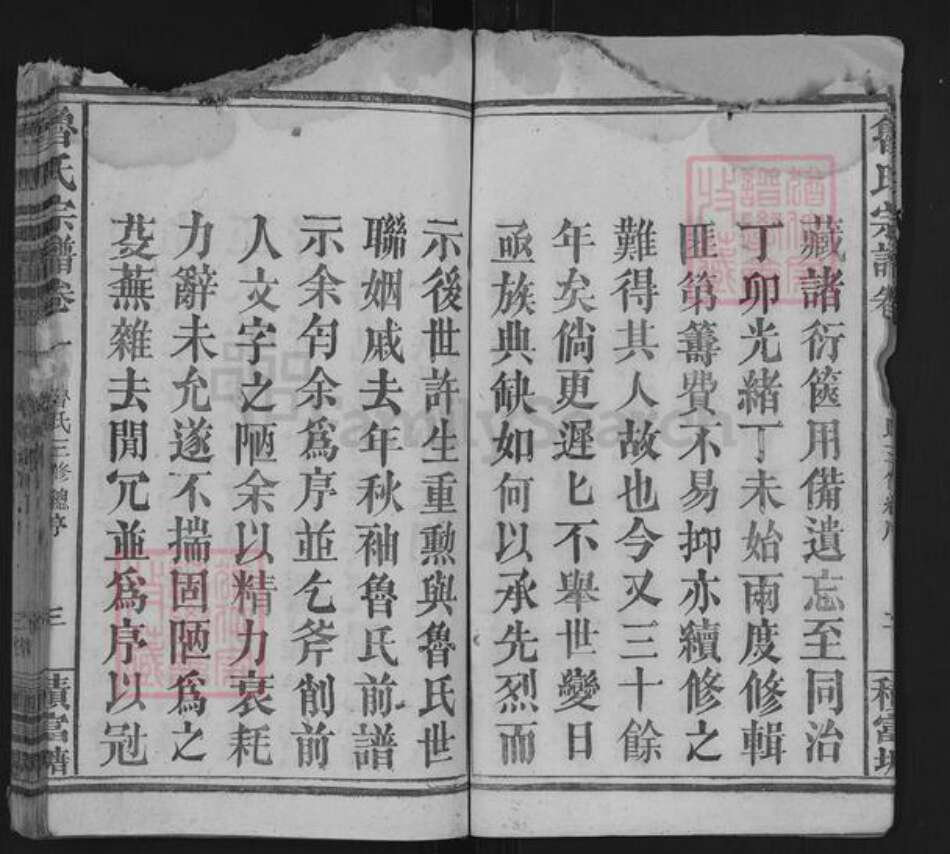 魯氏宗譜卷
藏諸衍篋用備遺忘至同治
丁卯光緒丁未始兩度修輯
匪第籌費不易抑亦續修之
難得其人故也今又三十餘
年矣倘更遲匕不舉世變日
亟族典缺如何以承先烈而
示後世許生重勲與魯氏世
聯姻戚去年秋袖魯氏前譜
示余匄余爲序並乞斧削前
人文字之陋余以精力衰耗
力辭未允遂不揣固陋爲之
芟蕪雜去閒冗並爲序以冠
魯氏宗譜卷一 魯氏三修總序 三 積富塘
FamilySearch